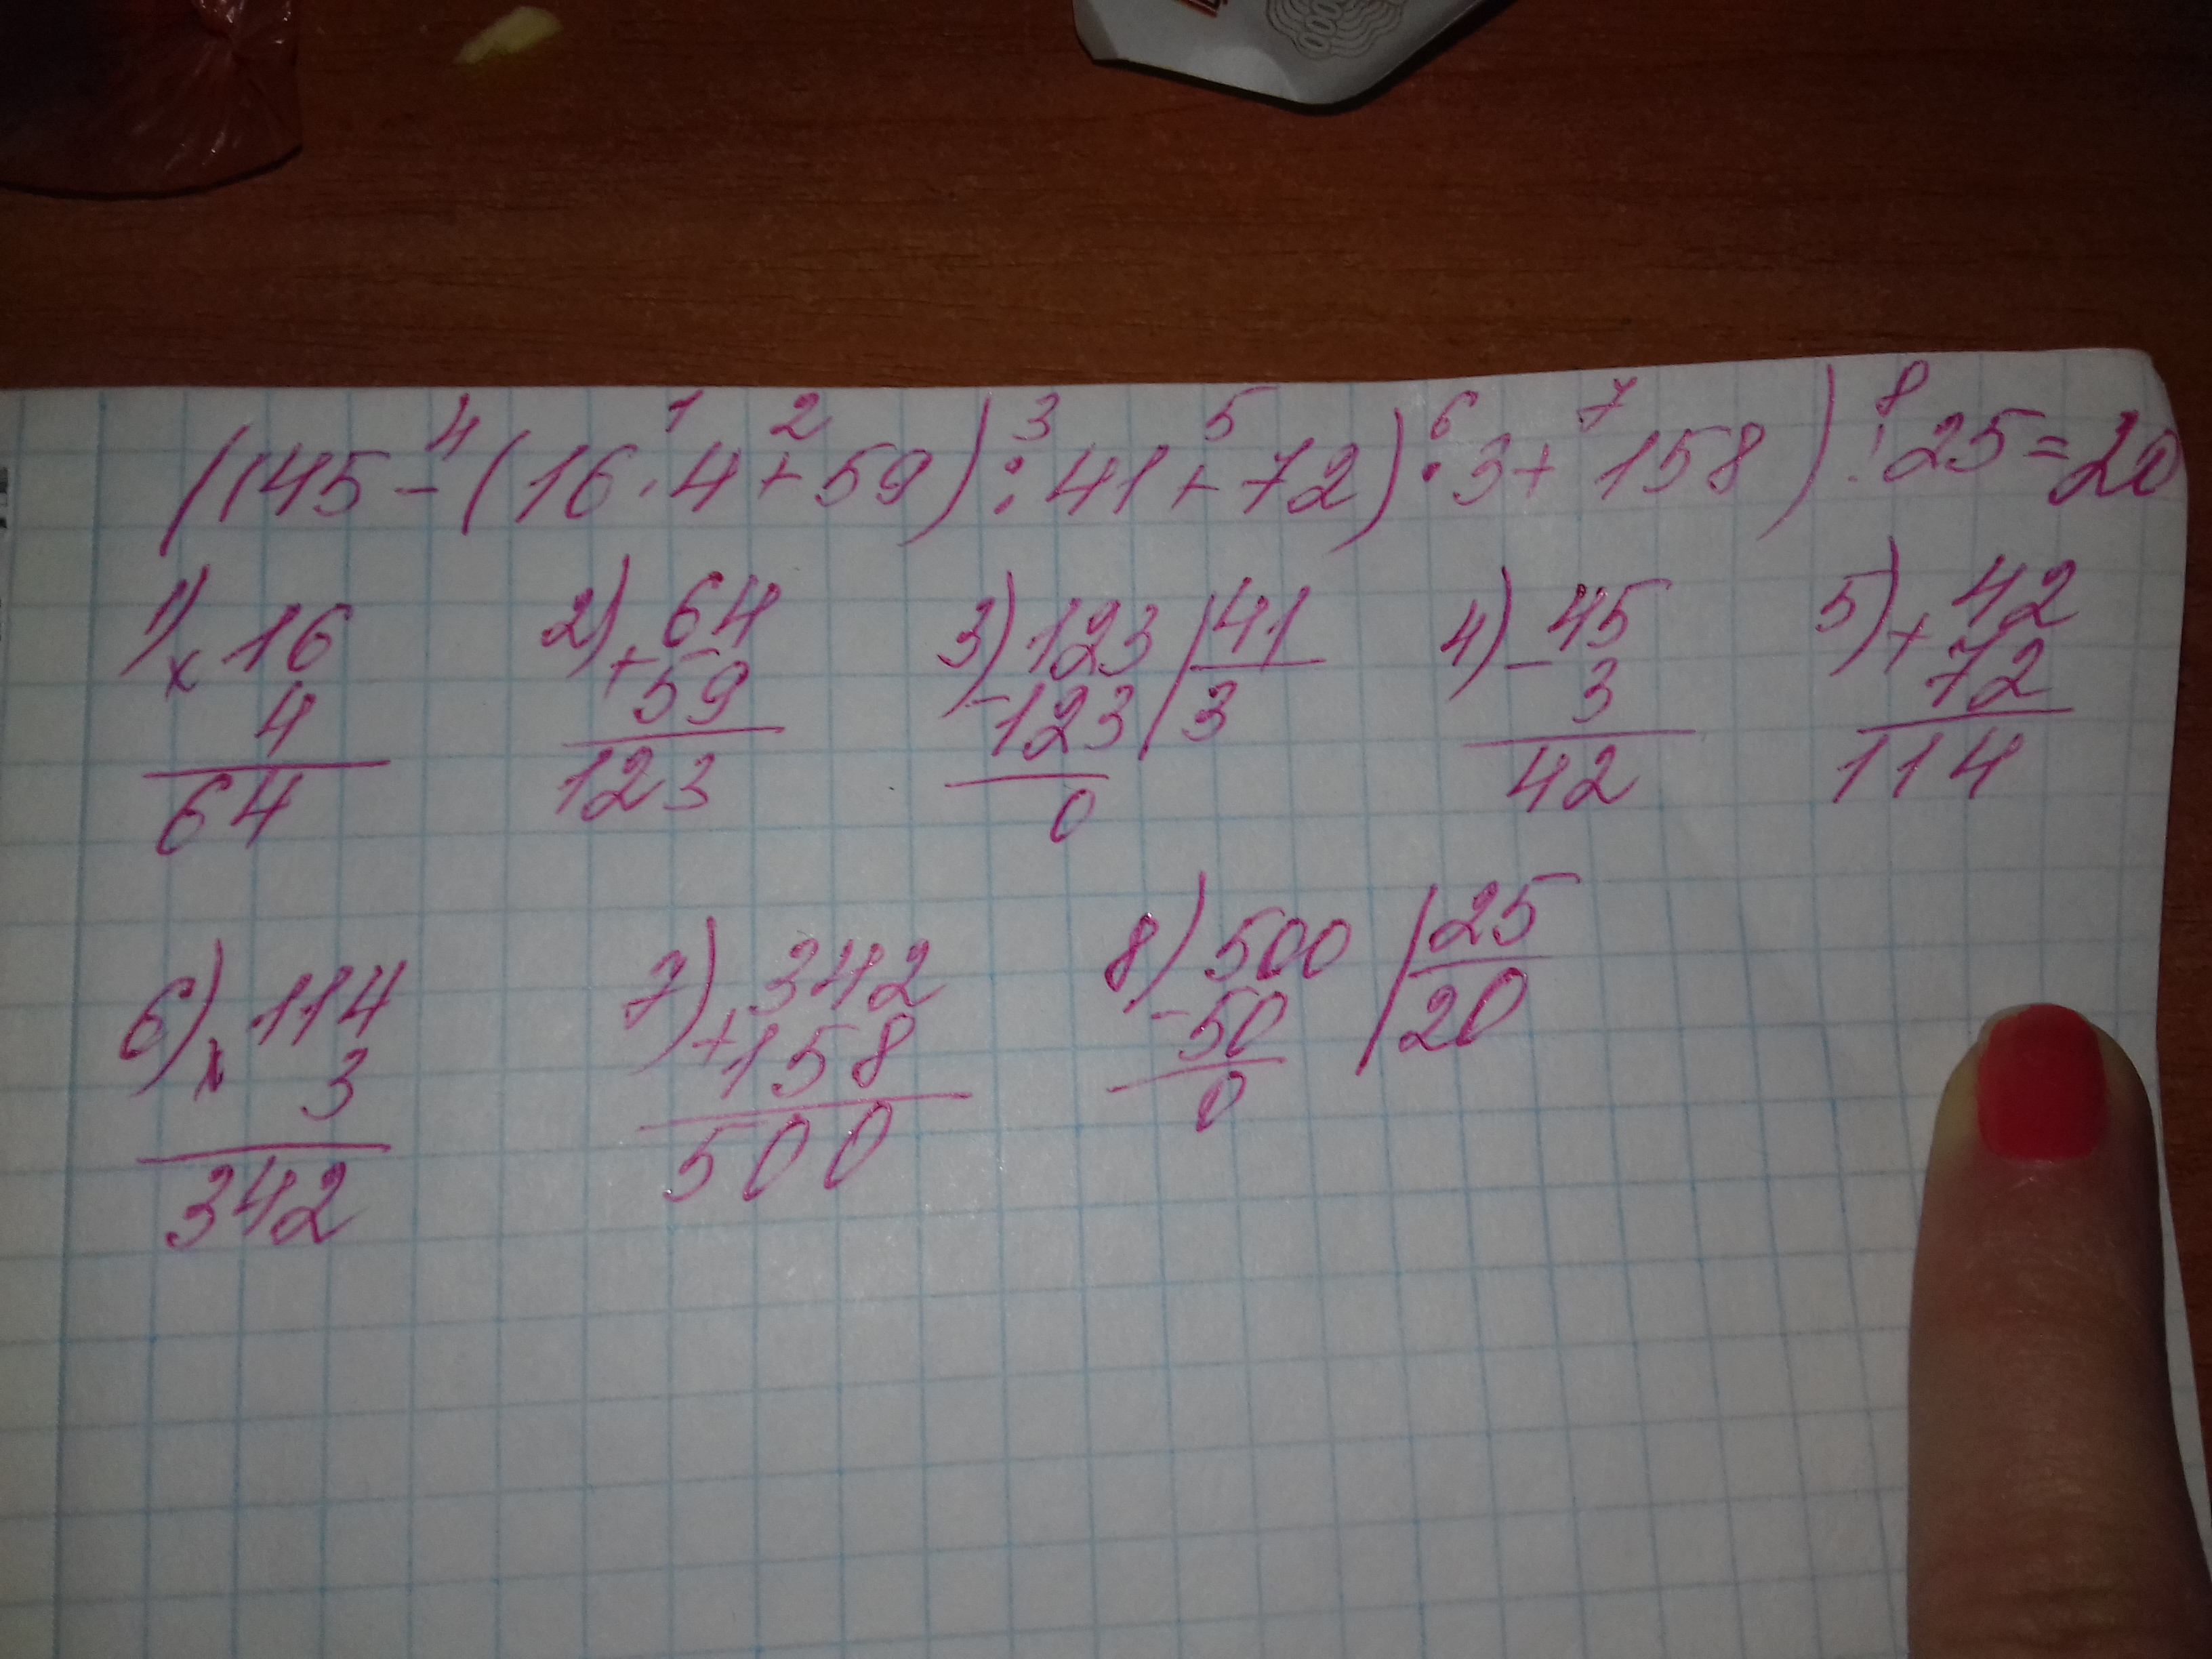 ((45-(16·4+59):41+72)·3+158):25=20
1 2 3 4 5 6 7 8
1) × 16 4 64
2) + 64 59 123
3) 123 | 41 -123 | 3 0
4) - 45 3 42
5) + 42 72 114
6) × 114 3 342
7) + 342 158 500
8) 500 | 25 -50 | 20 0